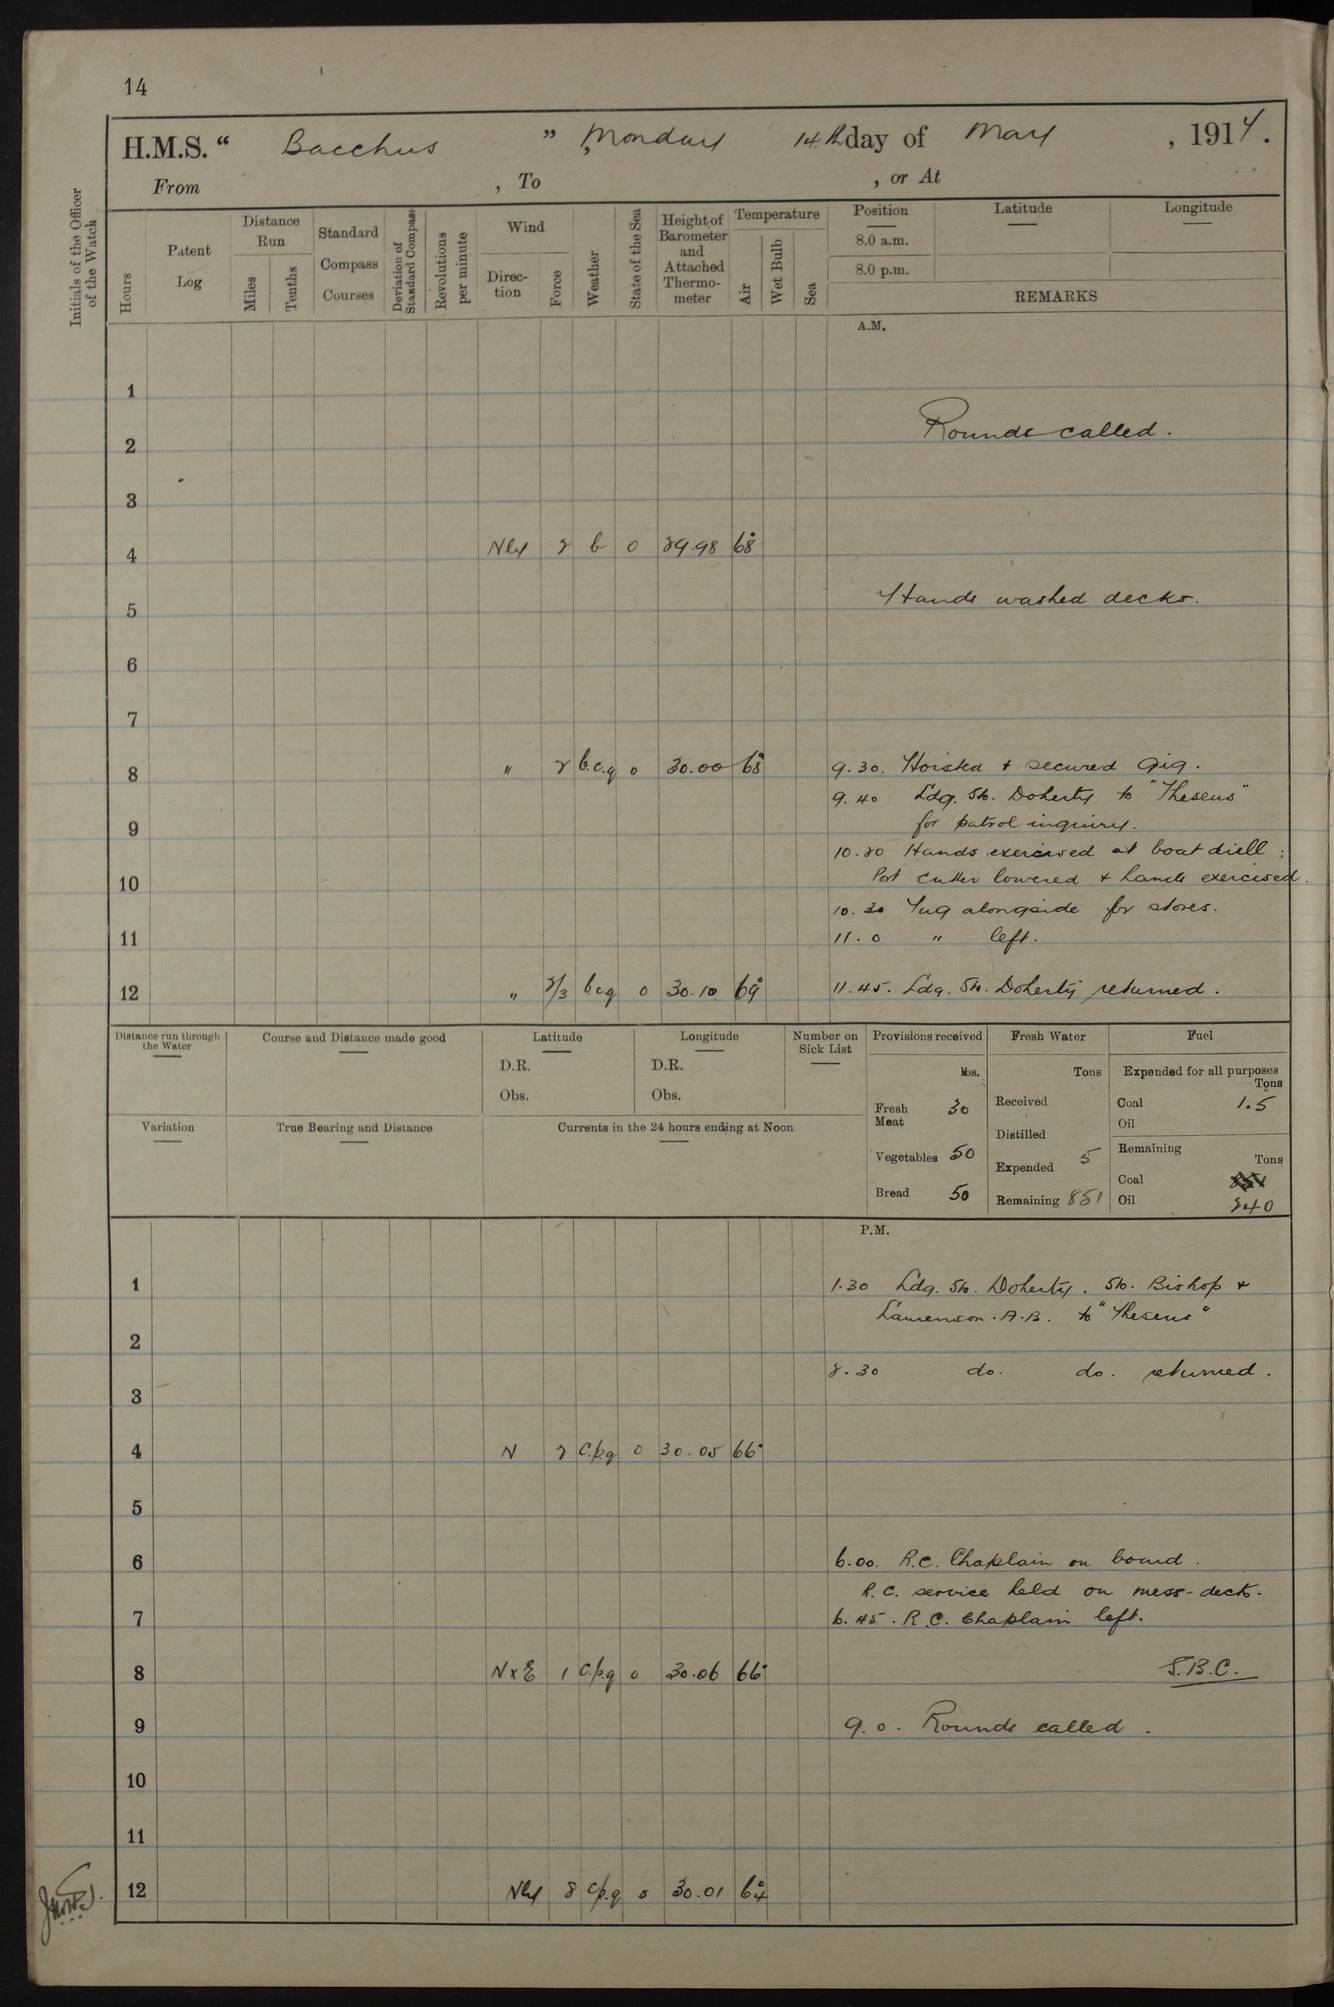 14
H.M.S. “ Bacchus ” , Monday 14th day of May , 1917.
From , To , or At
Initials of the Officer of the Watch
Hours
Patent Log
Distance Run
Miles
Tenths
Standard Compass Courses
Deviation of Standard Compass
Revolutions per minute
Wind
Direction
Force
Weather
State of the Sea
Height of Barometer and Attached Thermometer
Temperature
Air
Wet Bulb
Sea
Position Latitude Longitude
8.0 a.m.
8.0 p.m.
REMARKS
A.M.
1
Rounds called.
2
3
4 Nly 2 b 0 29.98 68°
Hands washed decks.
5
6
7
8 " 2 b.c.q 0 30.00 68°
9.30. Hoisted + secured Gig.
9.40 Ldg. Sto. Doherty to "Theseus"
for patrol inquiry.
9
10.20 Hands exercised at boat drill ;
Port cutter lowered + hands exercised.
10
10.30 Tug alongside for stores.
11.0 " left.
11
12 " 2/3 bcq 0 30.10 69° 11.45. Ldg. Sto. Doherty returned.
Distance run through the Water
Course and Distance made good
Latitude
D.R.
Obs.
Longitude
D.R.
Obs.
Number on Sick List
Provisions received
lbs.
Fresh Meat 30
Vegetables 50
Bread 50
Fresh Water
Tons
Received
Distilled
Expended 5
Remaining 851
Fuel
Expended for all purposes
Tons
Coal 1.5
Oil
Remaining
Tons
Coal
Oil 240
Variation
True Bearing and Distance
Currents in the 24 hours ending at Noon
P.M.
1 1.30 Ldg. Sto. Doherty. Sto. Bishop +
Laurenson. A.B. to "Theseus"
2
2.30 do. do. returned.
3
4 N 2 c.p.q 0 30.05 66°
5
6 6.00. R.C. Chaplain on board.
R.C. service held on mess-deck.
7 6.45. R.C. Chaplain left.
8 N x E 1 c.p.q 0 30.06 66° S.B.C.
9 9.0. Rounds called.
10
11
12 Nly 2 c.p.q 0 30.01 64°